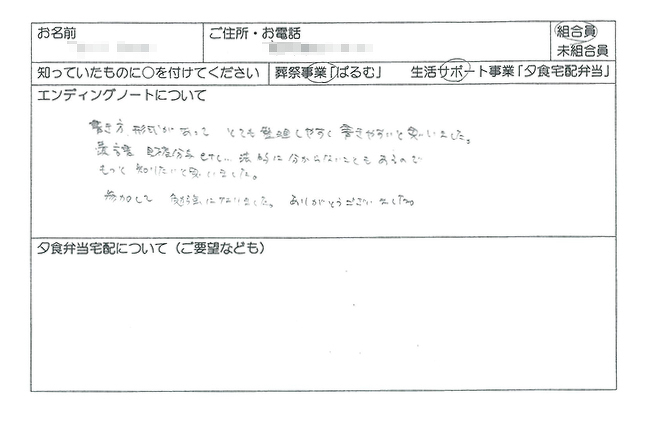 お名前
ご住所・お電話
組合員
未組合員
知っていたものに○を付けてください
葬祭事業「ぱるむ」
生活サポート事業「夕食宅配弁当」
エンディングノートについて
書き方、形式があって とても整理しやすく 書きやすいと思いました。
財産分与 に分からないことも あるので
もっと 知りたいと思いました。
参加して 勉強になりました。ありがとうございました。
夕食弁当宅配について（ご要望なども）